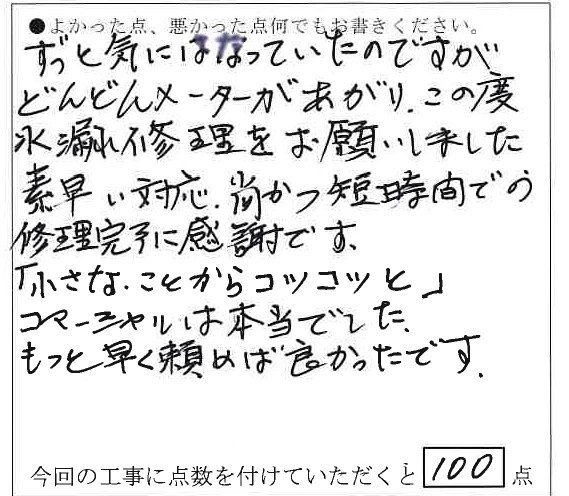 ●よかった点、悪かった点何でもお書きください。
ずっと気にはなっていたのですが
どんどんメーターがあがり、この度
水漏れ修理をお願いしました
素早い対応、尚かつ短時間での
修理完了に感謝です、
「小さな、ことからコツコツと」
コマーシャルは本当でした、
もっと早く頼めば良かったです、
今回の工事に点数を付けていただくと 100 点